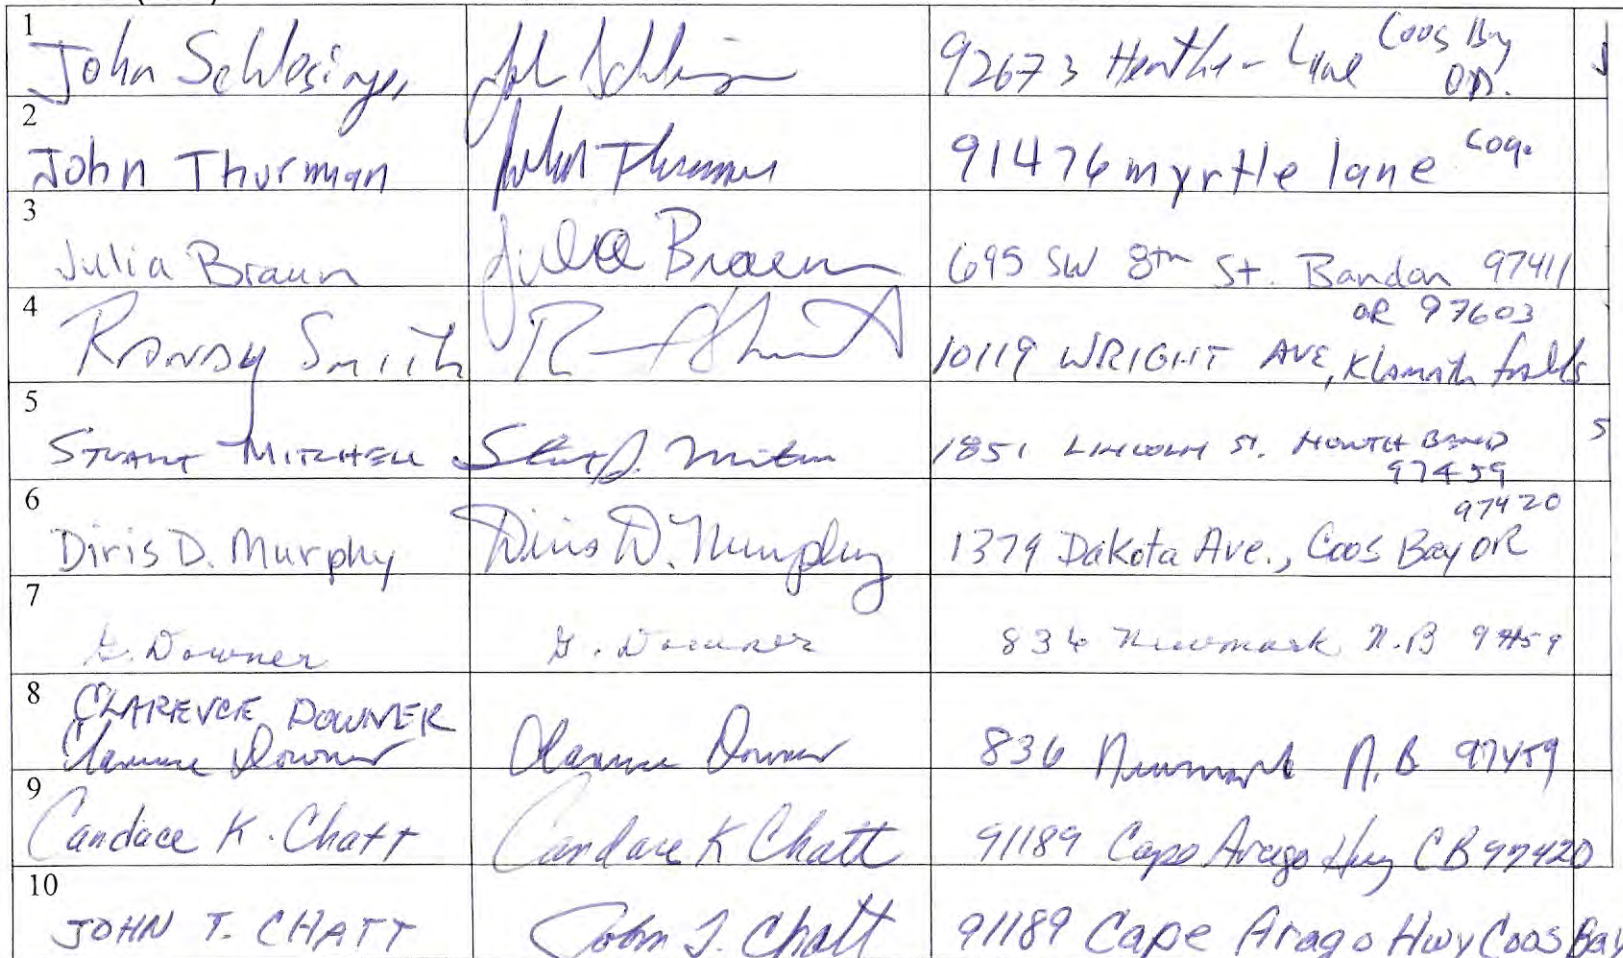 1
John Schlesinger
John Schlesinger
92673 Heather Lane Coos Bay
OR.
2
John Thurman
John Thurman
91476 myrtle lane Coq.
3
Julia Braun
Julia Braun
695 SW 8th St. Bandon 97411
4
Randy Smith
OR 97603
10119 WRIGHT AVE, Klamath falls
5
STUART MITCHELL
Stuart D. Mitchell
1851 LINCOLN ST. NORTH BEND
97459
6
Diris D. Murphy
Diris D. Murphy
97420
1379 Dakota Ave., Coos Bay OR
7
G. Downer
G. Downer
836 Newmark N.B 97459
8
CLARENCE DOWNER
Clarence Downer
Clarence Downer
836 Newmark N.B 97459
9
Candace K. Chatt
Candace K Chatt
91189 Cape Arago Hwy CB 97420
10
JOHN T. CHATT
John T. Chatt
91189 Cape Arago Hwy Coos Bay